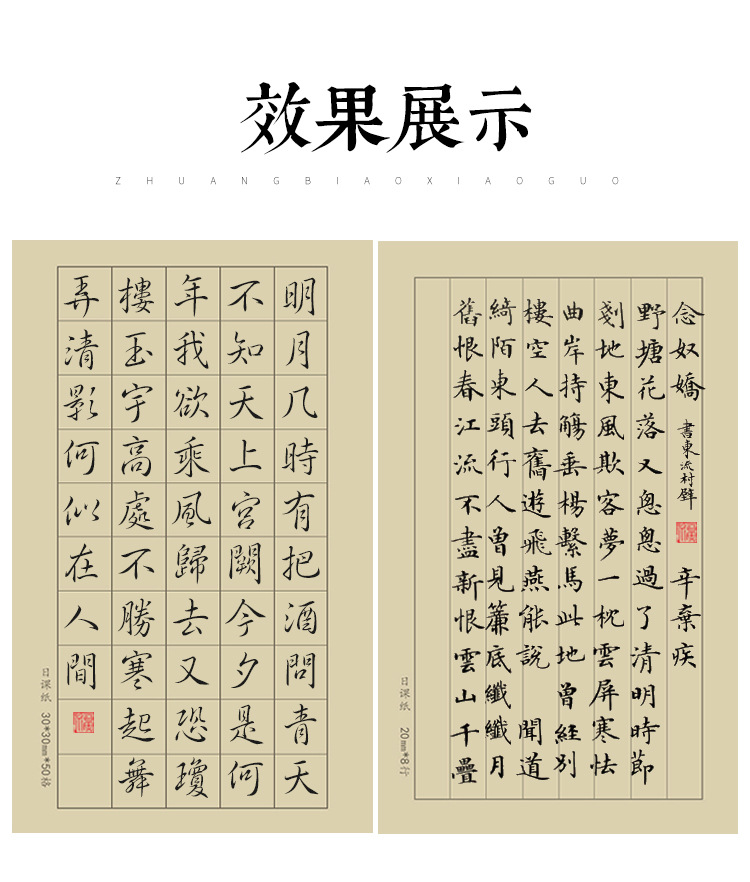 效果展示
ZHUANGBIAOXIAOGUO
明月几時有把酒問青天
不知天上宮闕今夕是何
年我欲乘風歸去又恐瓊
樓玉宇高處不勝寒起舞
弄清影何似在人間
日课纸 30*30mm*50格
念奴嬌 書東流村壁 辛棄疾
野塘花落又悤悤過了清明時節
剗地東風欺客夢一枕雲屏寒怯
曲岸持觴垂楊繫馬此地曾經別
樓空人去舊遊飛燕能説 聞道
綺陌東頭行人曾見簾底纖纖月
舊恨春江流不盡新恨雲山千疊
日课纸 20mm*8行